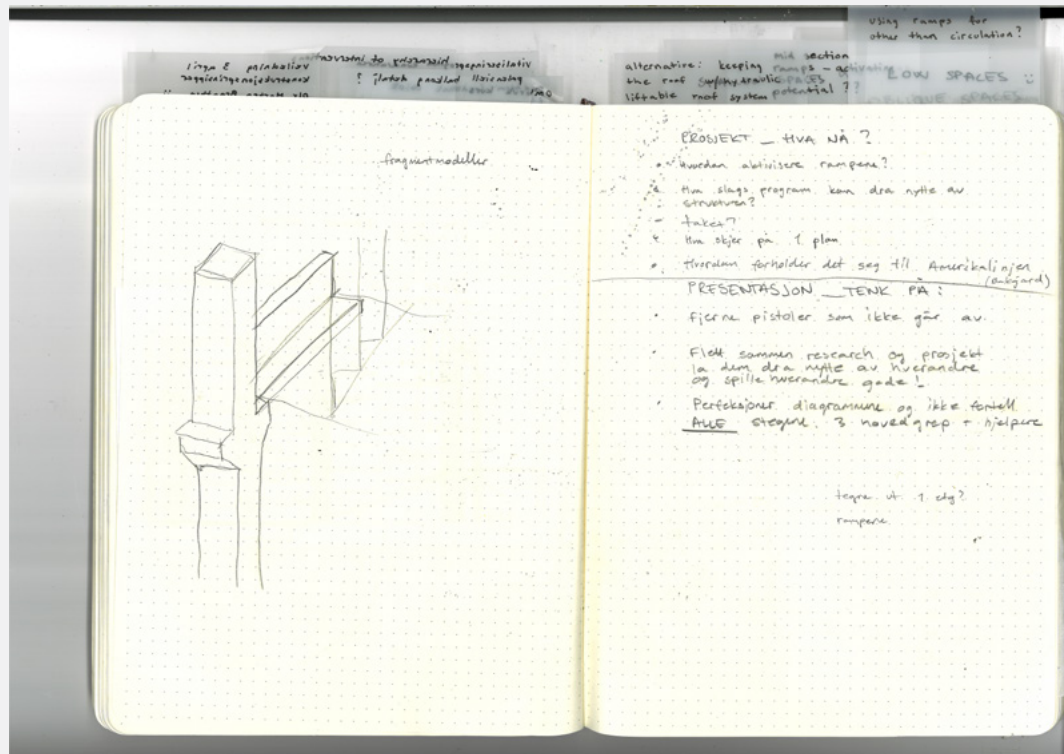 using ramps for
other than circulation?
mid section
alternative: keeping ramps – activating
the roof SPACES
liftable roof system potential ??
LOW SPACES
OBLIQUE SPACES
fragmentmodeller
PROSJEKT _ HVA NÅ ?
• Hvordan aktivisere rampene?
• Hva slags program kan dra nytte av
strukturen?
– taket?
• Hva skjer på 1. plan
• Hvordan forholder det seg til Amerikalinjen
(bakgård)
PRESENTASJON _ TENK PÅ :
• Fjerne pistoler som ikke går av.
• Flett sammen research og prosjekt
la dem dra nytte av hverandre
og spille hverandre gode !
• Perfeksjoner diagrammene og ikke fortell
ALLE stegene. 3 hovedgrep + hjelpere
tegne ut 1. etg?
rampene